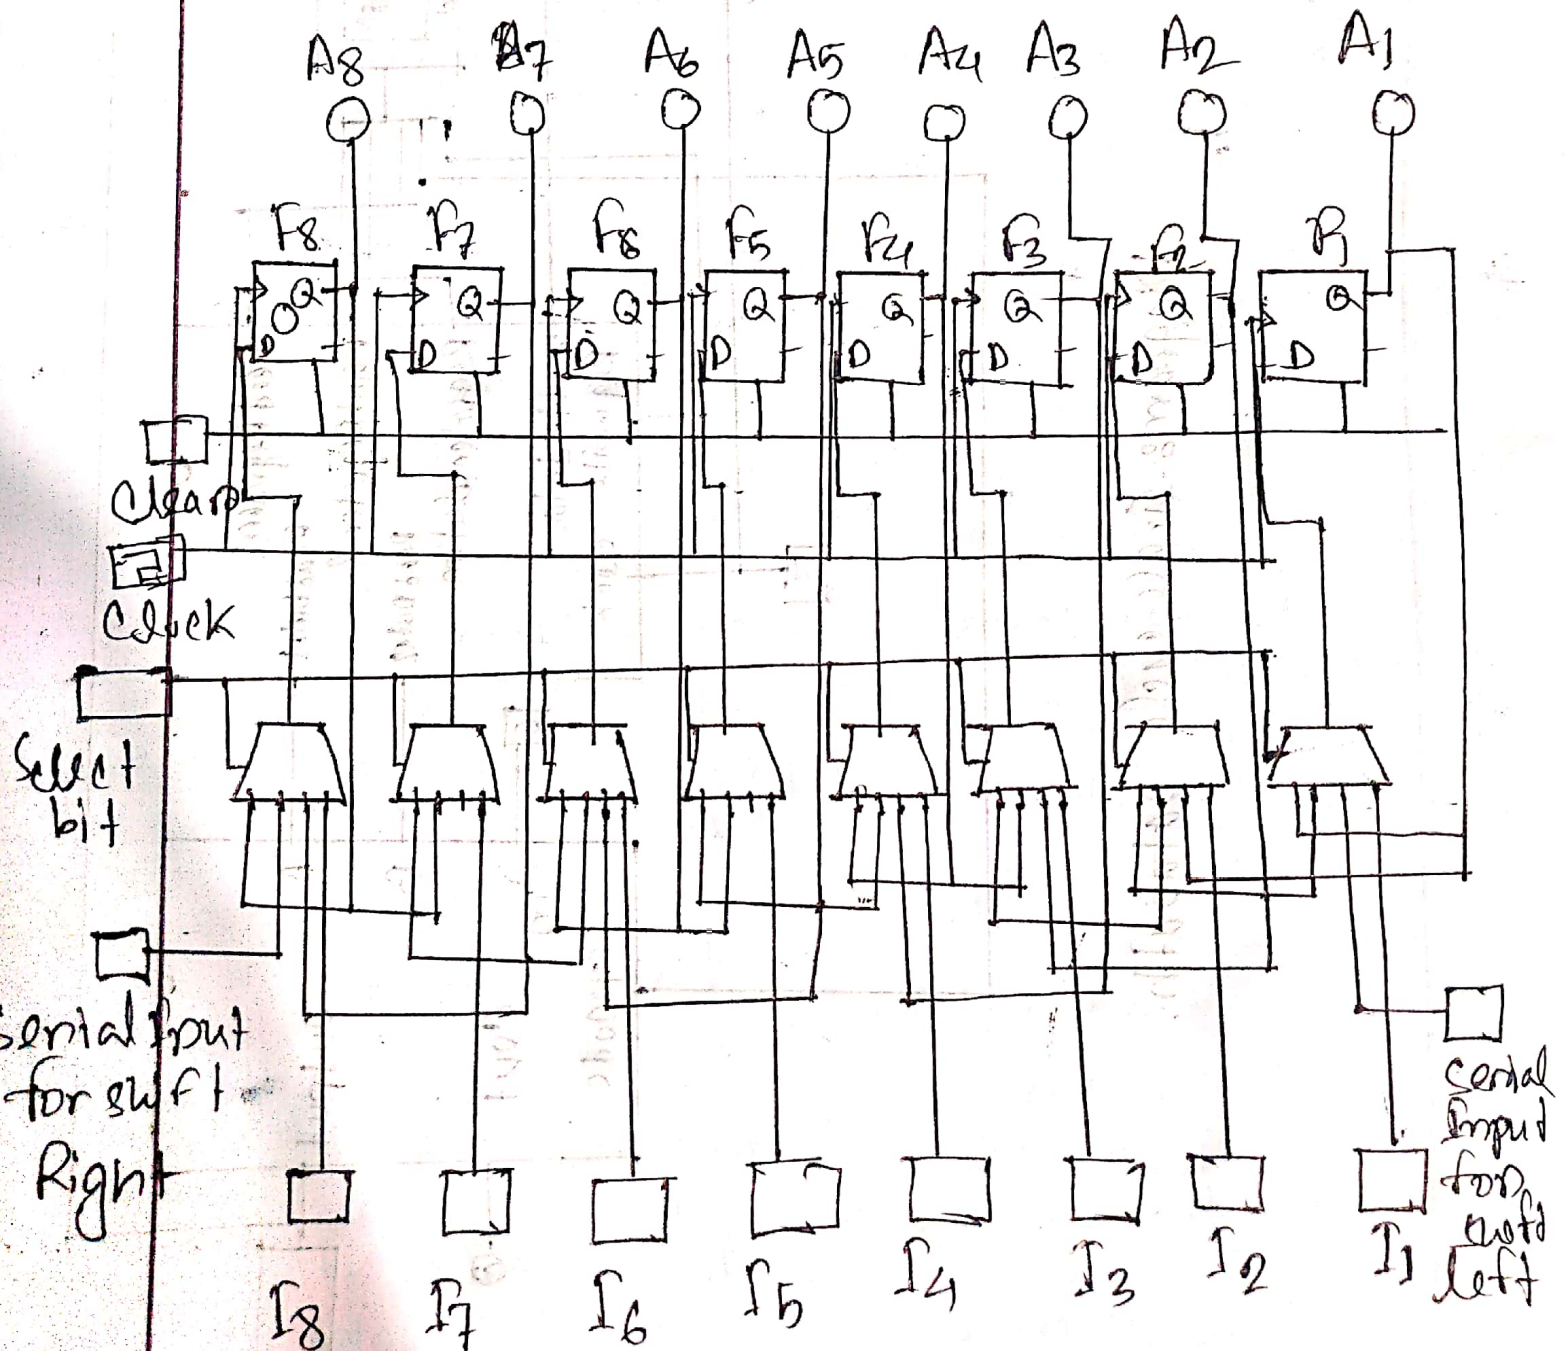 A8 A7 A6 A5 A4 A3 A2 A1
F8 F7 F6 F5 F4 F3 F2 F1
Q Q Q Q Q Q Q Q
D D D D D D D D
Clear
Clock
Select
bit
Serial Iput
for shift
Right
Serial
Input
for
shift
left
I8 I7 I6 I5 I4 I3 I2 I1